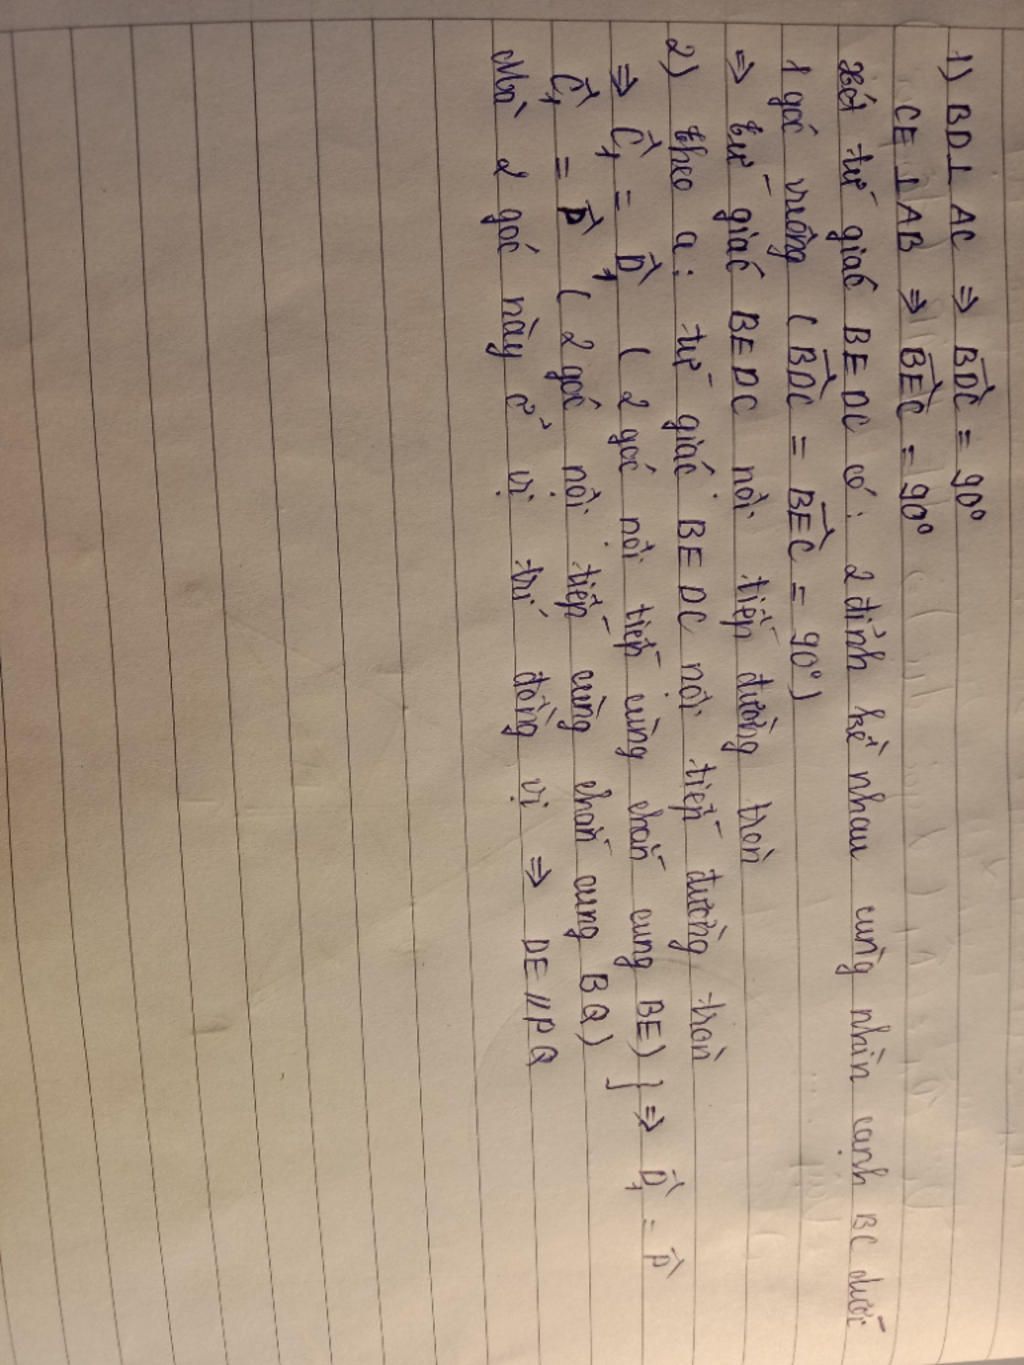 1) BD⊥ AC ⇒ B̂DC = 90°
CE ⊥ AB ⇒ B̂EC = 90°
Xét tứ giác BEDC có: 2 đỉnh kề nhau cùng nhìn cạnh BC dưới
1 góc vuông (B̂DC = B̂EC = 90°)
⇒ tứ giác BEDC nội tiếp đường tròn
2) theo a: tứ giác BEDC nội tiếp đường tròn
⇒ Ĉ₁ = D̂₁ (2 góc nội tiếp cùng chắn cung BE) } ⇒ D̂₁ = P̂
Ĉ₁ = P̂ (2 góc nội tiếp cùng chắn cung BQ)
Mà 2 góc này ở vị trí đồng vị ⇒ DE // PQ